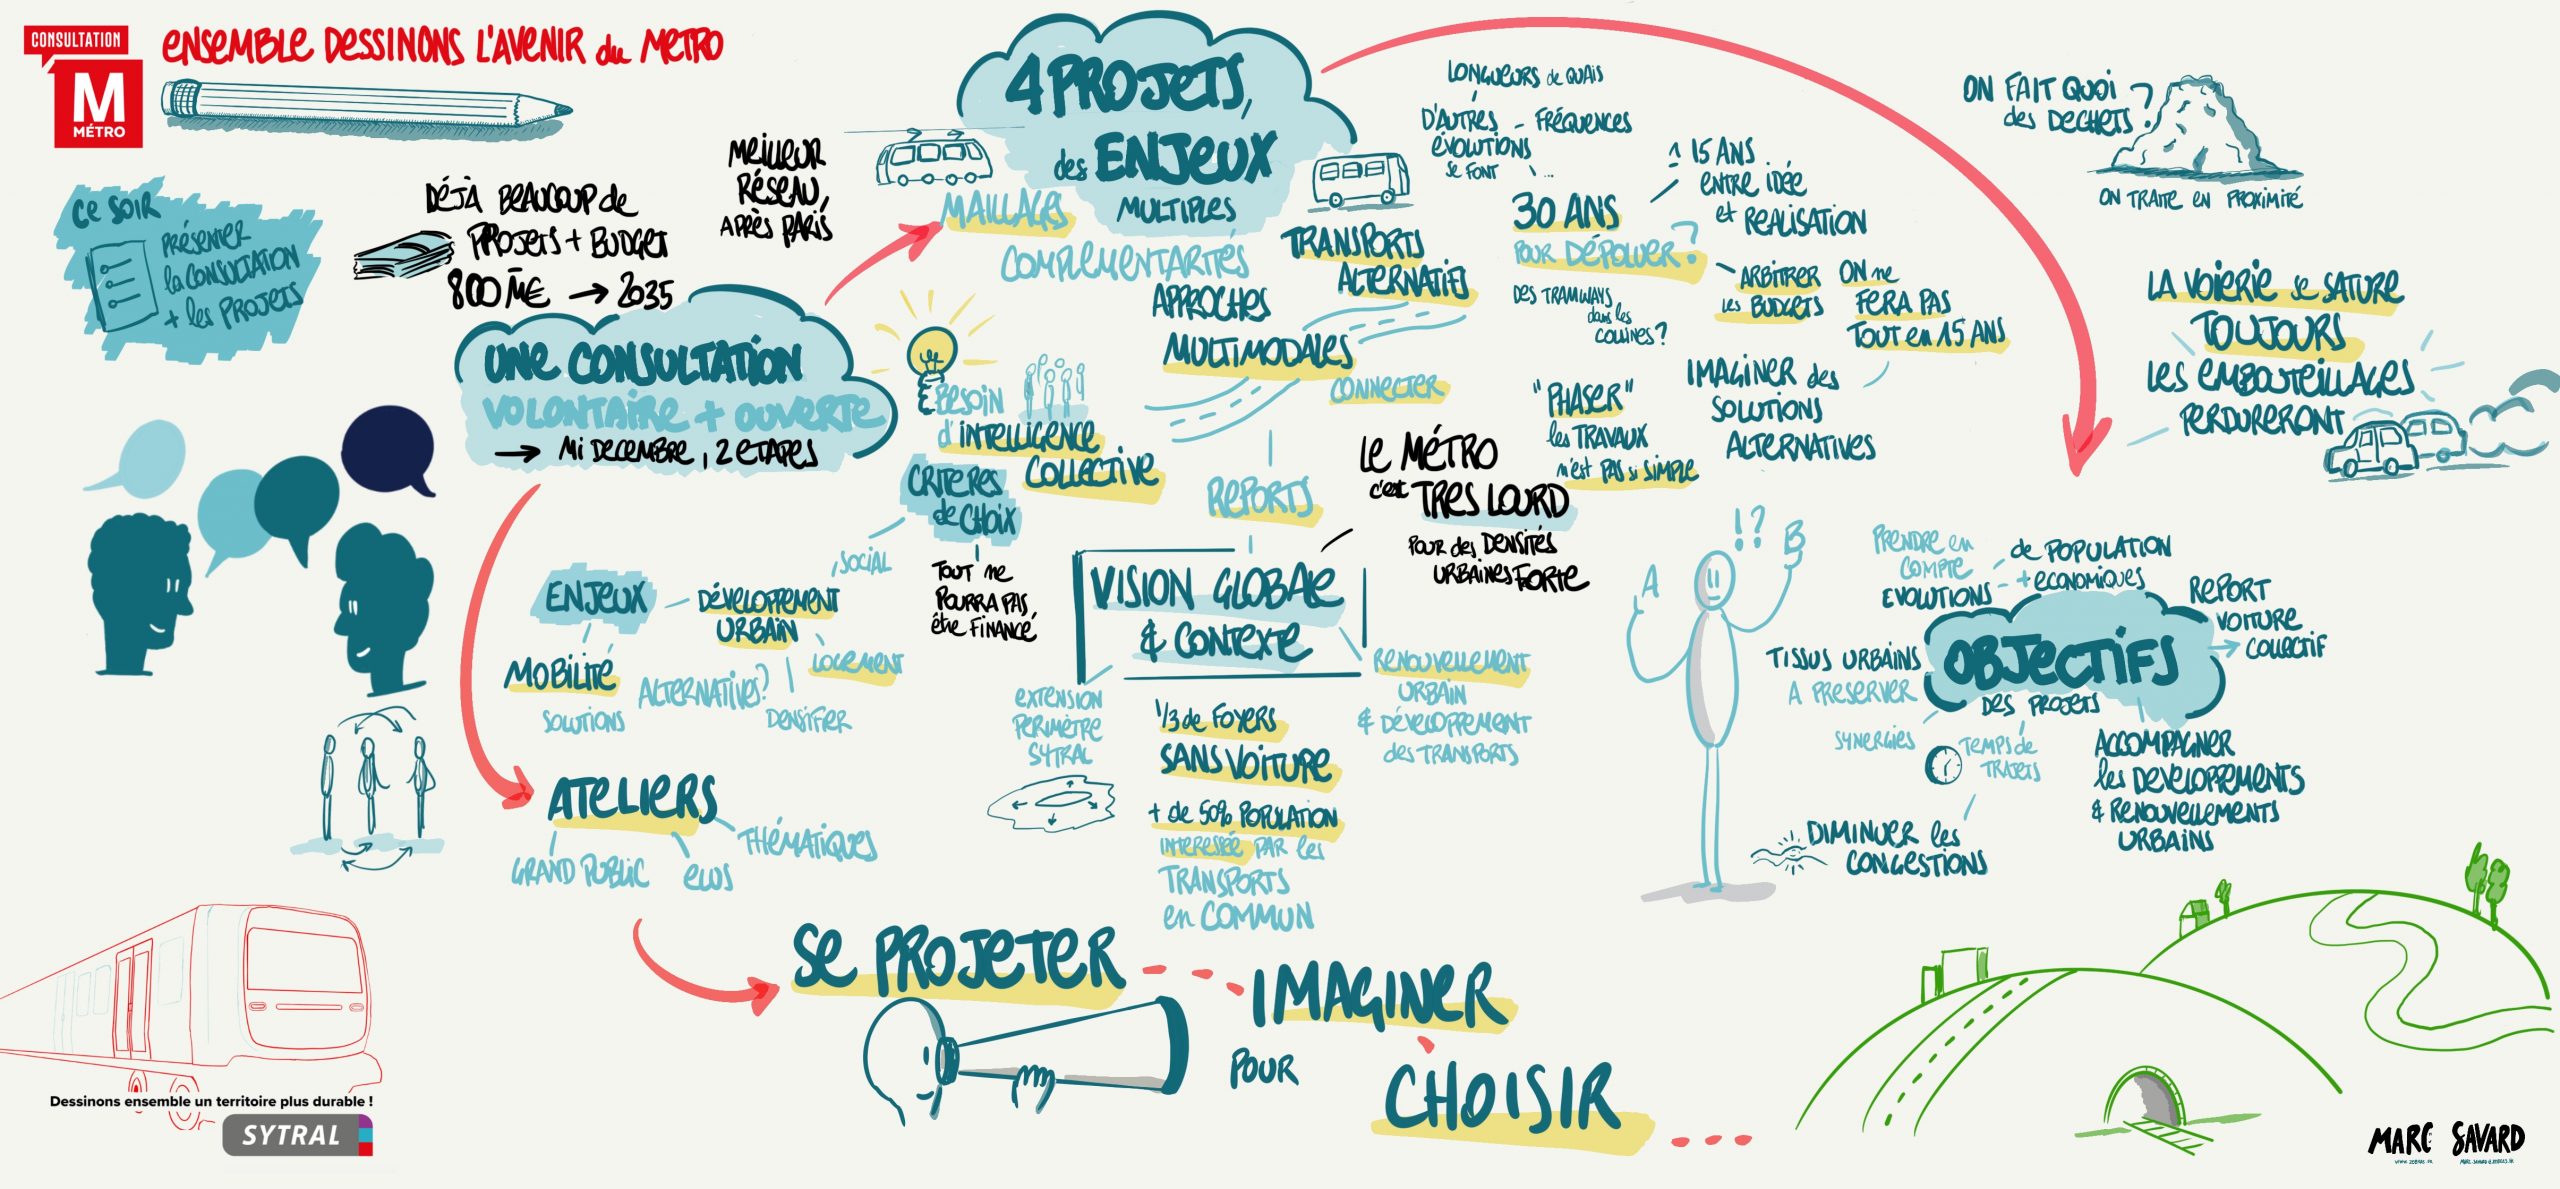 CONSULTATION
M
MÉTRO
ENSEMBLE DESSINONS L'AVENIR du METRO
CE SOIR
PRÉSENTER
la CONSULTATION
+ les PROJETS
DÉJÀ BEAUCOUP de
PROJETS + BUDGET
800 M€ → 2035
MEILLEUR
RÉSEAU,
APRÈS PARIS
UNE CONSULTATION
VOLONTAIRE + OUVERTE
→ MI DECEMBRE, 2 ETAPES
4 PROJETS,
des ENJEUX
MULTIPLES
MAILLAGES
COMPLEMENTARITÉS
APPROCHES
MULTIMODALES
TRANSPORTS
ALTERNATIFS
CONNECTER
REPORTS
BESOIN
d'INTELLIGENCE
COLLECTIVE
CRITERES
de CHOIX
TOUT NE
POURRA PAS,
être FINANCÉ
ENJEUX
DÉVELOPPEMENT
URBAIN
SOCIAL
LOGEMENT
DENSIFIER
MOBILITE
SOLUTIONS
ALTERNATIVES?
ATELIERS
GRAND PUBLIC
ELUS
THÉMATIQUES
VISION GLOBALE
& CONTEXTE
EXTENSION
PERIMÈTRE
SYTRAL
1/3 de FOYERS
SANS VOITURE
+ de 50% POPULATION
INTERESSÉE PAR les
TRANSPORTS
en COMMUN
RENOUVELLEMENT
URBAIN
& DÉVELOPPEMENT
des TRANSPORTS
LE MÉTRO
c'est TRES LOURD
POUR des DENSITÉS
URBAINES FORTE
LONGUEURS de QUAIS
D'AUTRES - FRÉQUENCES
ÉVOLUTIONS
SE FONT ...
30 ANS
POUR DÉPOLUER?
15 ANS
ENTRE IDÉE
et REALISATION
ARBITRER
LES BUDGETS
ON NE
FERA PAS
TOUT en 15 ANS
DES TRAMWAYS
dans les
COLLINES?
"PHASER"
les TRAVAUX
n'est PAS si SIMPLE
IMAGINER des
SOLUTIONS
ALTERNATIVES
ON FAIT QUOI
des DECHETS?
ON TRAITE EN PROXIMITÉ
LA VOIERIE SE SATURE
TOUJOURS
LES EMBOUTEILLAGES
PERDURERONT
A
!?
B
PRENDRE en
COMPTE
EVOLUTIONS
de POPULATION
+ ECONOMIQUES
REPORT
VOITURE
→ COLLECTIF
OBJECTIFS
DES PROJETS
TISSUS URBAINS
A PRESERVER
SYNERGIES
TEMPS de
TRAJETS
DIMINUER les
CONGESTIONS
ACCOMPAGNER
les DEVELOPPEMENTS
& RENOUVELLEMENTS
URBAINS
SE PROJETER
IMAGINER
POUR
CHOISIR
Dessinons ensemble un territoire plus durable !
SYTRAL
MARC SAVARD